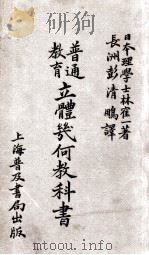 日本理學士林隺一著
長洲彭清鵬譯
普通
教育
立體幾何教科書
上海普及書局出版
www.duxiu.com